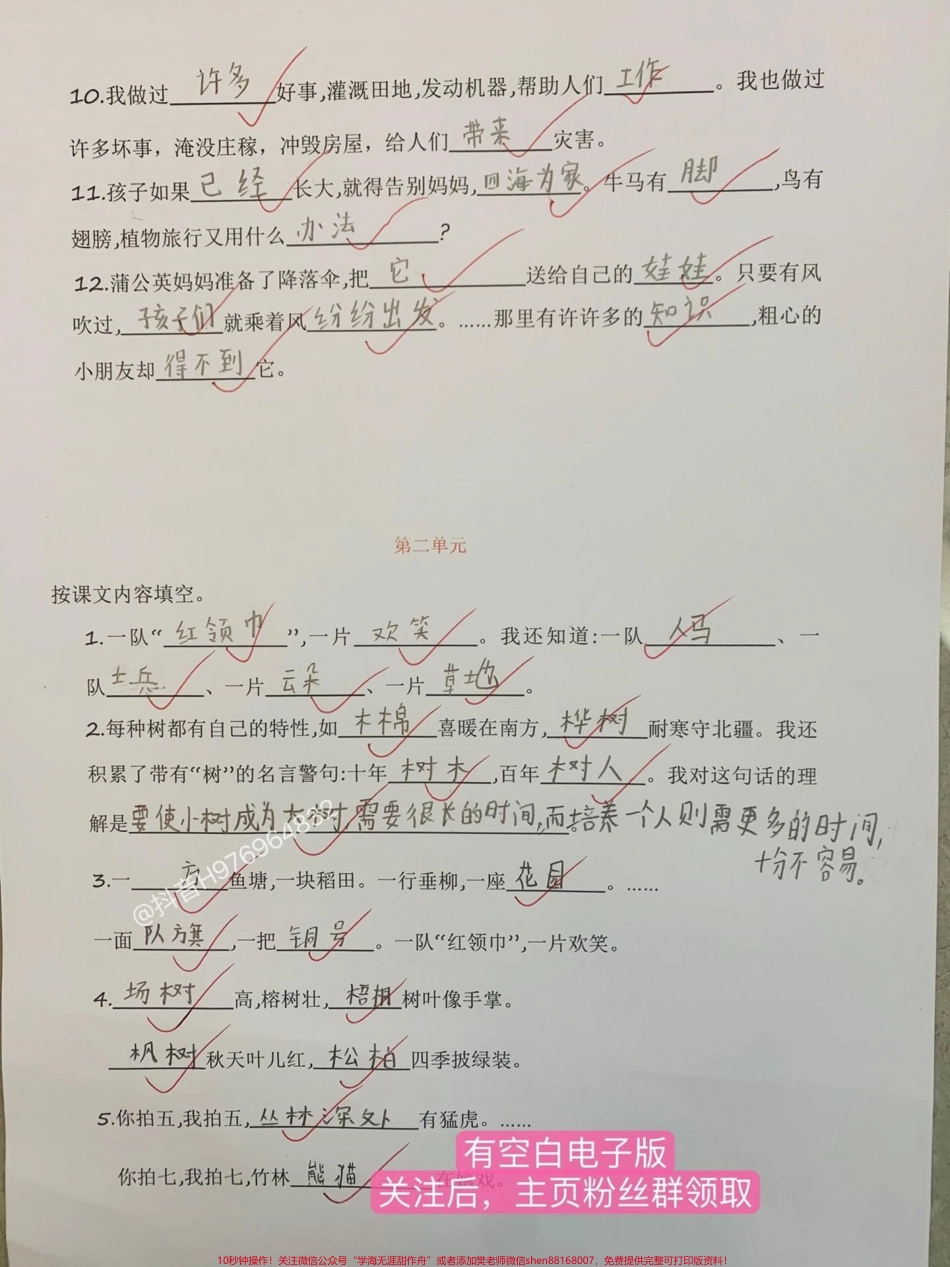 10.我做过许多好事,灌溉田地,发动机器,帮助人们工作。我也做过
许多坏事，淹没庄稼，冲毁房屋，给人们带来灾害。
11.孩子如果已经长大,就得告别妈妈,四海为家。牛马有脚,鸟有
翅膀,植物旅行又用什么办法?
12.蒲公英妈妈准备了降落伞,把它送给自己的娃娃。只要有风
吹过,孩子们就乘着风纷纷出发。……那里有许许多的知识,粗心的
小朋友却得不到它。
第二单元
按课文内容填空。
1.一队“红领巾”,一片欢笑。我还知道:一队人马、一
队士兵、一片云朵、一片草地。
2.每种树都有自己的特性,如木棉喜暖在南方,桦树耐寒守北疆。我还
积累了带有“树”的名言警句:十年树木,百年树人。我对这句话的理
解是要使小树成为大树需要很长的时间,而培养一个人则需更多的时间,
十分不容易。
3.一方鱼塘,一块稻田。一行垂柳,一座花园。……
@抖音H976964832
一面队旗,一把铜号。一队“红领巾”,一片欢笑。
4.场树高,榕树壮,梧桐树叶像手掌。
枫树秋天叶儿红,松柏四季披绿装。
5.你拍五,我拍五,丛林深处有猛虎。……
有空白电子版
你拍七,我拍七,竹林熊猫在嬉戏。
关注后，主页粉丝群领取
10秒钟操作！关注微信公众号“学海无涯甜作舟”或者添加樊老师微信shen88168007，免费提供完整可打印版资料！